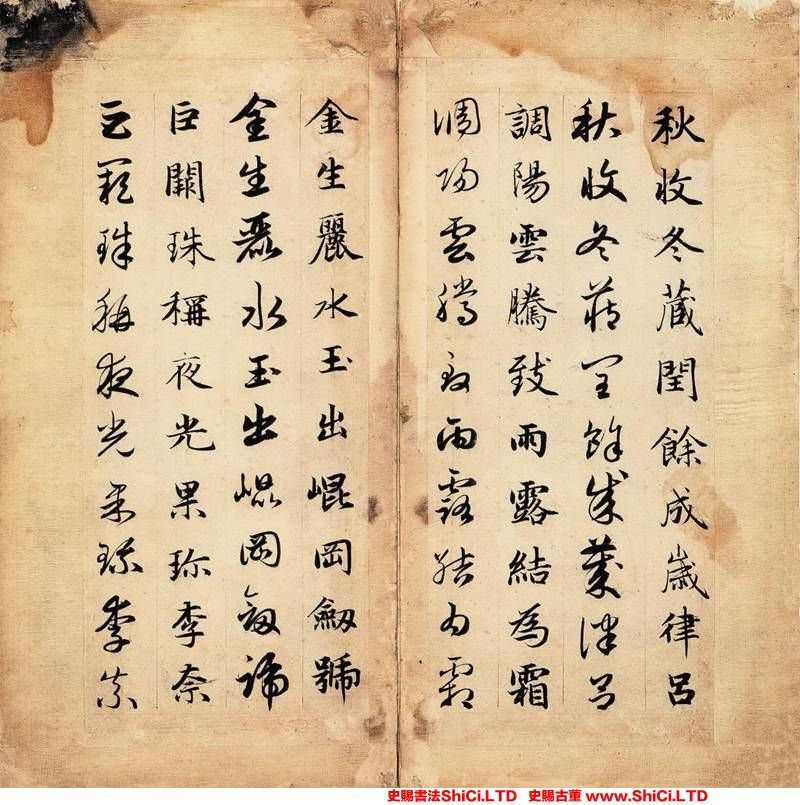 秋收冬蔵閏餘成歲律呂
秋收冬蔵閏餘成歲律呂
調陽雲騰致雨露結為霜
調陽雲騰致雨露結為霜
金生麗水玉出崐岡劔號
金生麗水玉出崐岡劔號
巨闕珠稱夜光果珎李柰
巨闕珠稱夜光果珎李柰
史賜書法ShiCi.LTD 史賜古董 www.ShiCi.LTD